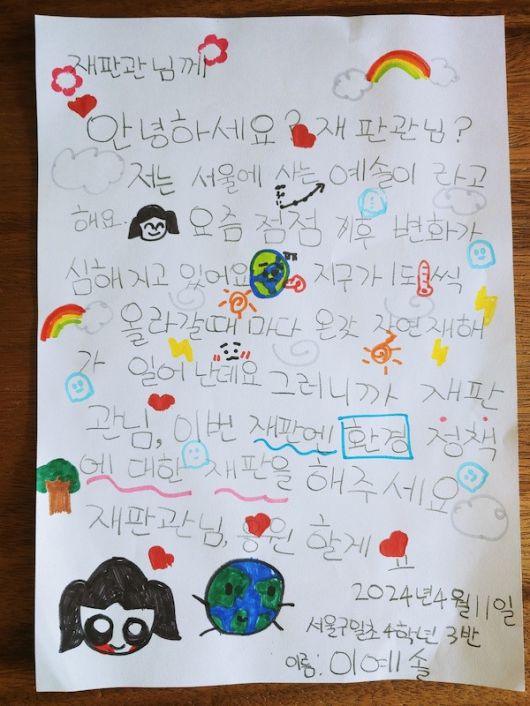 재판관님께
안녕하세요? 재판관님?
저는 서울에 사는 예솔이 라고
해요. 요즘 점점 기후 변화가
심해지고 있어요 지구가 1도 씩
올라갈때 마다 온갖 자연재해
가 일어 난데요 그러니까 재판
관님, 이번 재판엔 환경 정책
에 대한 재판을 해주세요
재판관님, 응원 할게요
2024년4월11일
서울구일초 4학년 3반
이름: 이예솔